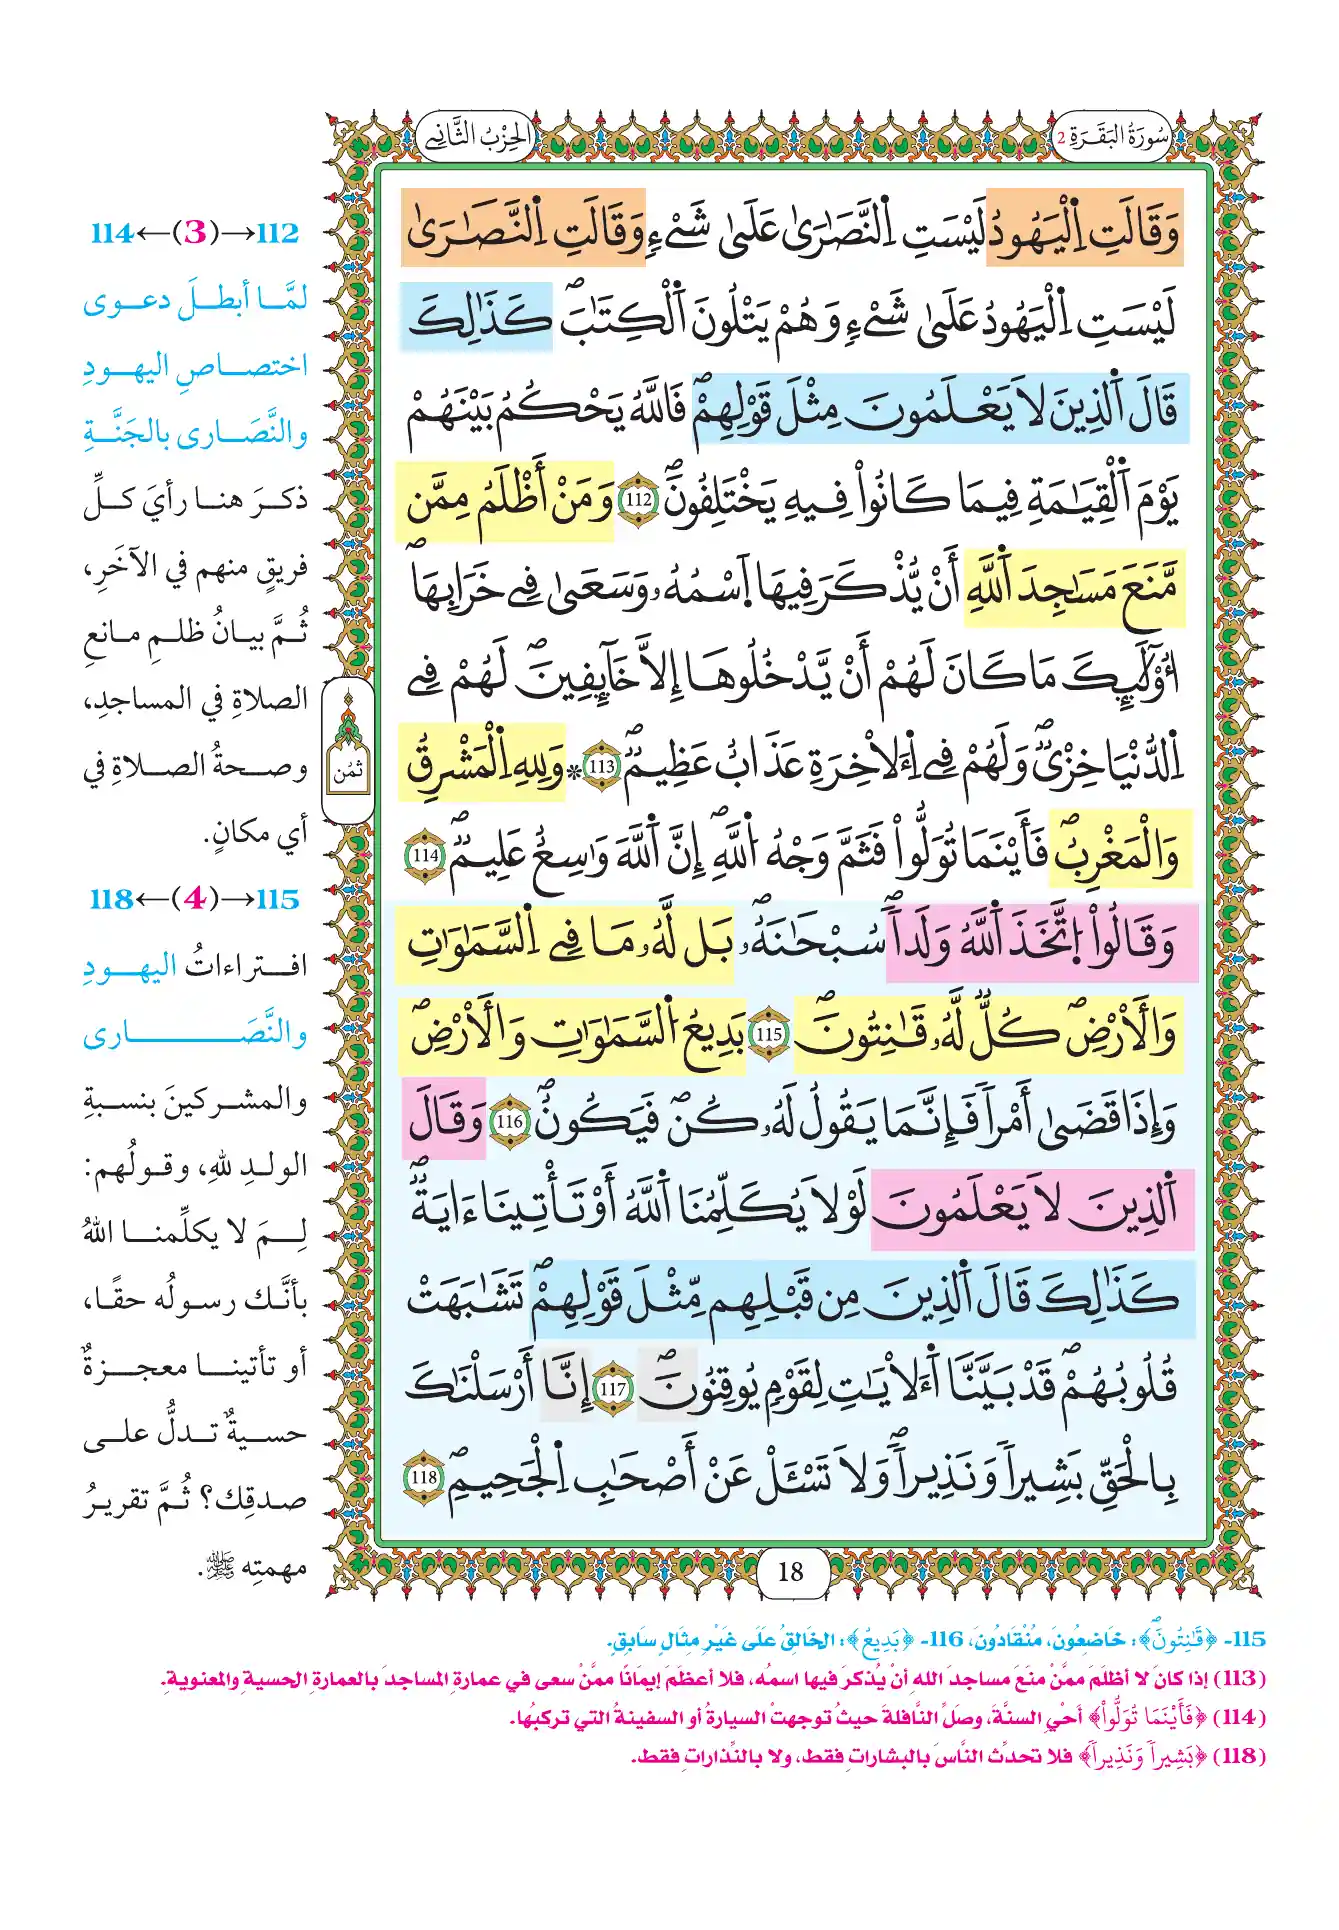 سُورَةُ البَقَرَةِ 2
الحِزْبُ الثَّانِي
وَقَالَتِ اِ۬لْيَهُودُ لَيْسَتِ اِ۬لنَّصَٰر۪يٰ عَلَيٰ شَےْءٖ وَقَالَتِ اِ۬لنَّصَٰر۪يٰ
لَيْسَتِ اِ۬لْيَهُودُ عَلَيٰ شَےْءٖ وَهُمْ يَتْلُونَ اَ۬لْكِتَٰبَۖ كَذَٰلِكَ
قَالَ اَ۬لذِينَ لَا يَعْلَمُونَ مِثْلَ قَوْلِهِمْۖ فَاللَّهُ يَحْكُمُ بَيْنَهُمْ
يَوْمَ اَ۬لْقِيَٰمَةِ فِيمَا كَانُواْ فِيهِ يَخْتَلِفُونَۖ 112 وَمَنْ أَظْلَمُ مِمَّن
مَّنَعَ مَسَٰجِدَ اَ۬للَّهِ أَنْ يُّذْكَرَ فِيهَا اَ۪سْمُهُۥ وَسَعَيٰ فِے خَرَابِهَاۖ
أُوْلَٰٓئِكَ مَا كَانَ لَهُمْ أَنْ يَّدْخُلُوهَا إِلَّا خَآئِفِينَۖ لَهُمْ فِے
اِ۬لدُّنْيَا خِزْيٞۖ وَلَهُمْ فِے اِ۬لَاخِرَةِ عَذَابٌ عَظِيمٞۖ 113 * وَلِلهِ اِ۬لْمَشْرِقُ
وَالْمَغْرِبُۖ فَأَيْنَمَا تُوَلُّواْ فَثَمَّ وَجْهُ اُ۬للَّهِۖ إِنَّ اَ۬للَّهَ وَٰسِعٌ عَلِيمٞۖ 114
وَقَالُواْ اُ۪تَّخَذَ اَ۬للَّهُ وَلَداٗۖ سُبْحَٰنَهُۥۖ بَل لَّهُۥ مَا فِے اِ۬لسَّمَٰوَٰتِ
وَالْأَرْضِۖ كُلّٞ لَّهُۥ قَٰنِتُونَۖ 115 بَدِيعُ اُ۬لسَّمَٰوَٰتِ وَالْأَرْضِۖ
وَإِذَا قَضَيٰ أَمْراٗ فَإِنَّمَا يَقُولُ لَهُۥ كُنۖ فَيَكُونُۖ 116 وَقَالَ
اَ۬لذِينَ لَا يَعْلَمُونَ لَوْلَا يُكَلِّمُنَا اَ۬للَّهُ أَوْ تَأْتِينَا ءَايَةٞۖ
كَذَٰلِكَ قَالَ اَ۬لذِينَ مِن قَبْلِهِم مِّثْلَ قَوْلِهِمْۖ تَشَٰبَهَتْ
قُلُوبُهُمْۖ قَدْ بَيَّنَّا اَ۬لَايَٰتِ لِقَوْمٖ يُوقِنُونَۖ 117 إِنَّا أَرْسَلْنَٰكَ
بِالْحَقِّ بَشِيراٗ وَنَذِيراٗۖ وَلَا تَسْـَٔلْ عَنْ أَصْحَٰبِ اِ۬لْجَحِيمِۖ 118
ثمُن
18
112→(3)←114
لمَّا أبطلَ دعوى
اختصاصِ اليهودِ
والنَّصَارى بالجَنَّةِ
ذكرَ هنا رأيَ كلِّ
فريقٍ منهم في الآخَرِ،
ثُمَّ بيانُ ظلمِ مانعِ
الصلاةِ في المساجدِ،
وصحةُ الصلاةِ في
أي مكانٍ.
115→(4)←118
افتراءاتُ اليهودِ
والنَّصَارى
والمشركينَ بنسبةِ
الولدِ للهِ، وقولُهم:
لِمَ لا يكلِّمنا اللهُ
بأنَّك رسولُه حقًا،
أو تأتينا معجزةٌ
حسيةٌ تدلُّ على
صدقِك؟ ثُمَّ تقريرُ
مهمتِه ﷺ.
115- ﴿قَٰنِتُونَۖ﴾: خَاضِعُونَ، مُنْقَادُونَ، 116- ﴿بَدِيعُ﴾: الخَالِقُ عَلَى غَيْرِ مِثَالٍ سَابِقٍ.
(113) إذا كانَ لا أظلَمَ ممَّنْ منَعَ مساجدَ اللهِ أنْ يُذكرَ فيها اسمُه، فلا أعظمَ إيمَانًا ممَّنْ سعى في عمارةِ المساجدَ بالعمارةِ الحسيةِ والمعنويةِ.
(114) ﴿فَأَيْنَمَا تُوَلُّواْ﴾ أحْيِ السنَّةَ، وصَلِّ النَّافلةَ حيثُ توجهتْ السيارةُ أو السفينةُ التي تركبُها.
(118) ﴿بَشِيراٗ وَنَذِيراٗ﴾ فلا تحدِّث النَّاسَ بالبشاراتِ فقط، ولا بالنِّذاراتِ فقط.